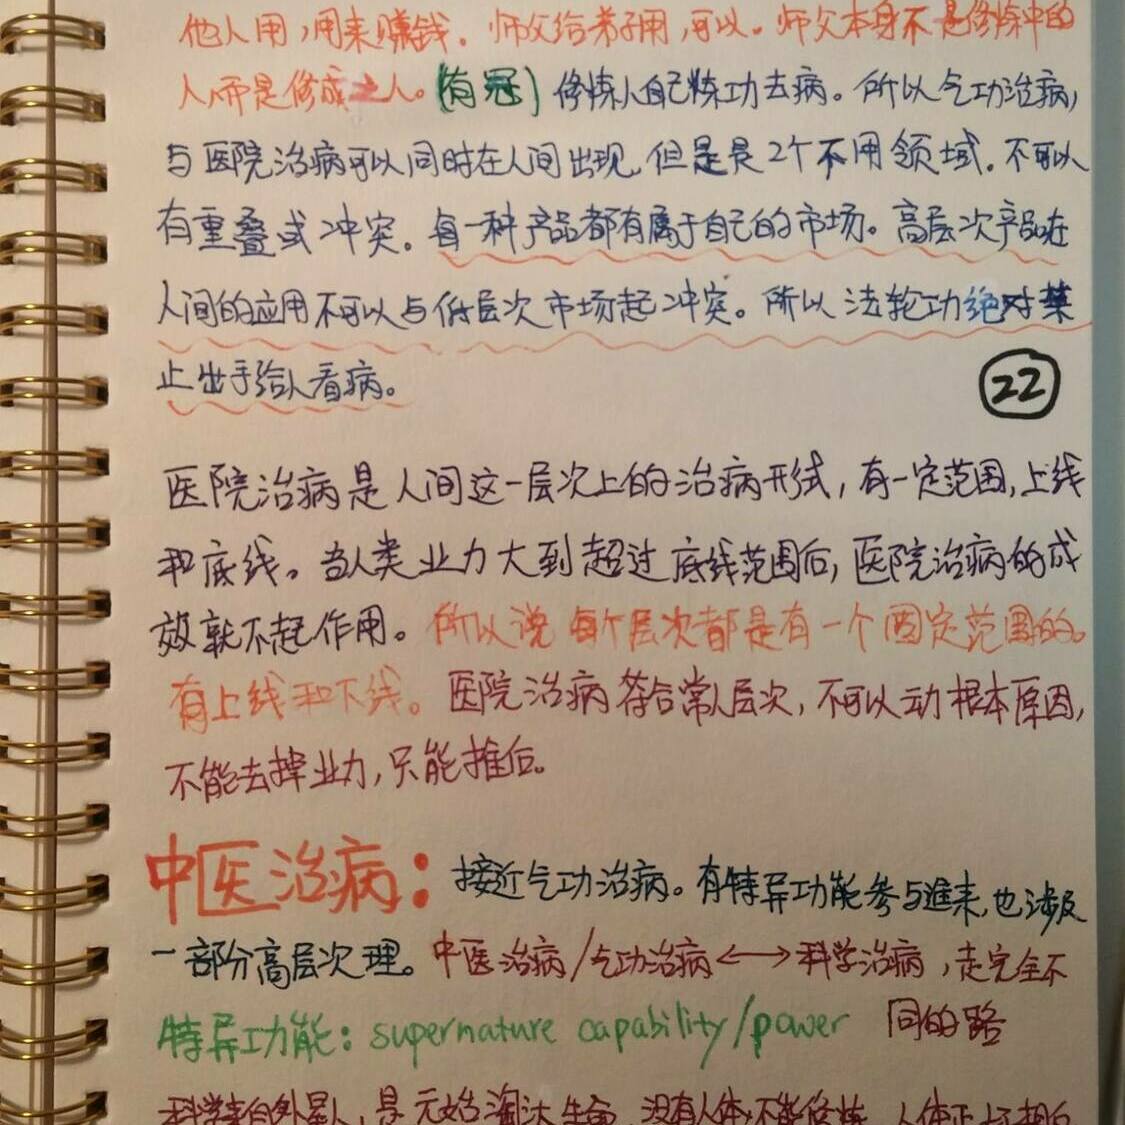 他人用，用来赚钱。师父给弟子用，可以。师父本身不是修炼中的
人而是修成之人。(有冠) 修炼人自己炼功去病。所以气功治病，
与医院治病可以同时在人间出现，但是是2个不用领域。不可以
有重叠或冲突。每一种产品都有属于自己的市场。高层次产品在
人间的应用不可以与低层次市场起冲突。所以法轮功绝对禁
止出手给人看病。
22
医院治病是人间这一层次上的治病形式，有一定范围，上线
和底线。当人类业力大到超过底线范围后，医院治病的成
效就不起作用。所以说每个层次都是有一个固定范围的。
有上线和下线。医院治病符合常人层次，不可以动根本原因，
不能去掉业力，只能推后。
中医治病：接近气功治病。有特异功能参与进来，也涉及
一部分高层次理。中医治病/气功治病<—>科学治病，走完全不
同的路
特异功能：supernature capability/power
科学来自外星人，是元始淘汰生命，没有人体不能修炼，人体正